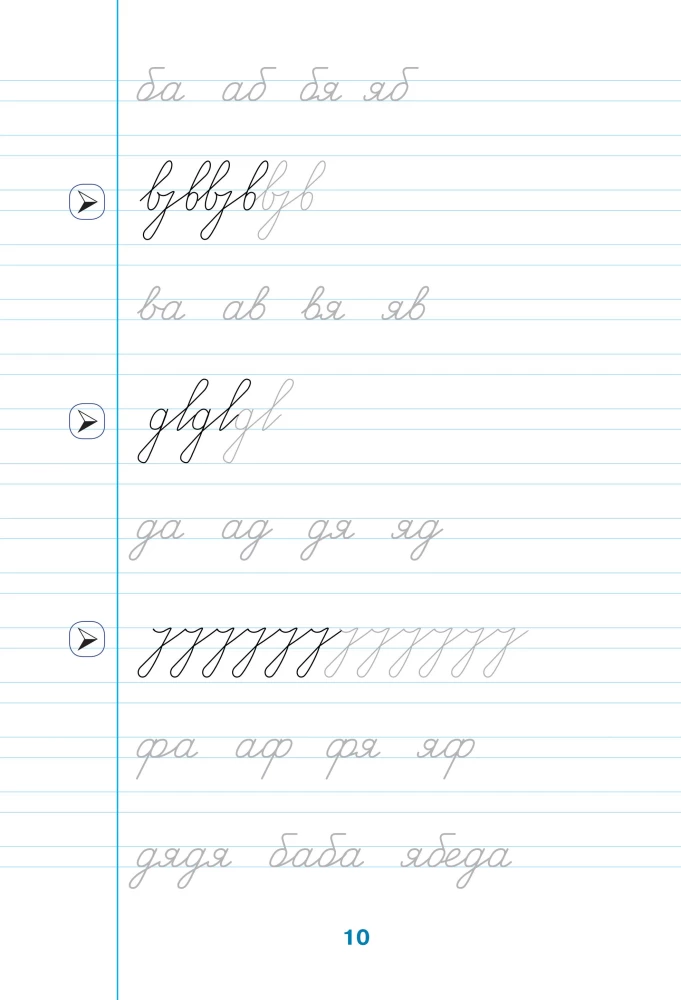 ба аб бя яб
ва ав вя яв
да ад дя яд
фа аф фя яф
дядя баба ябеда
10